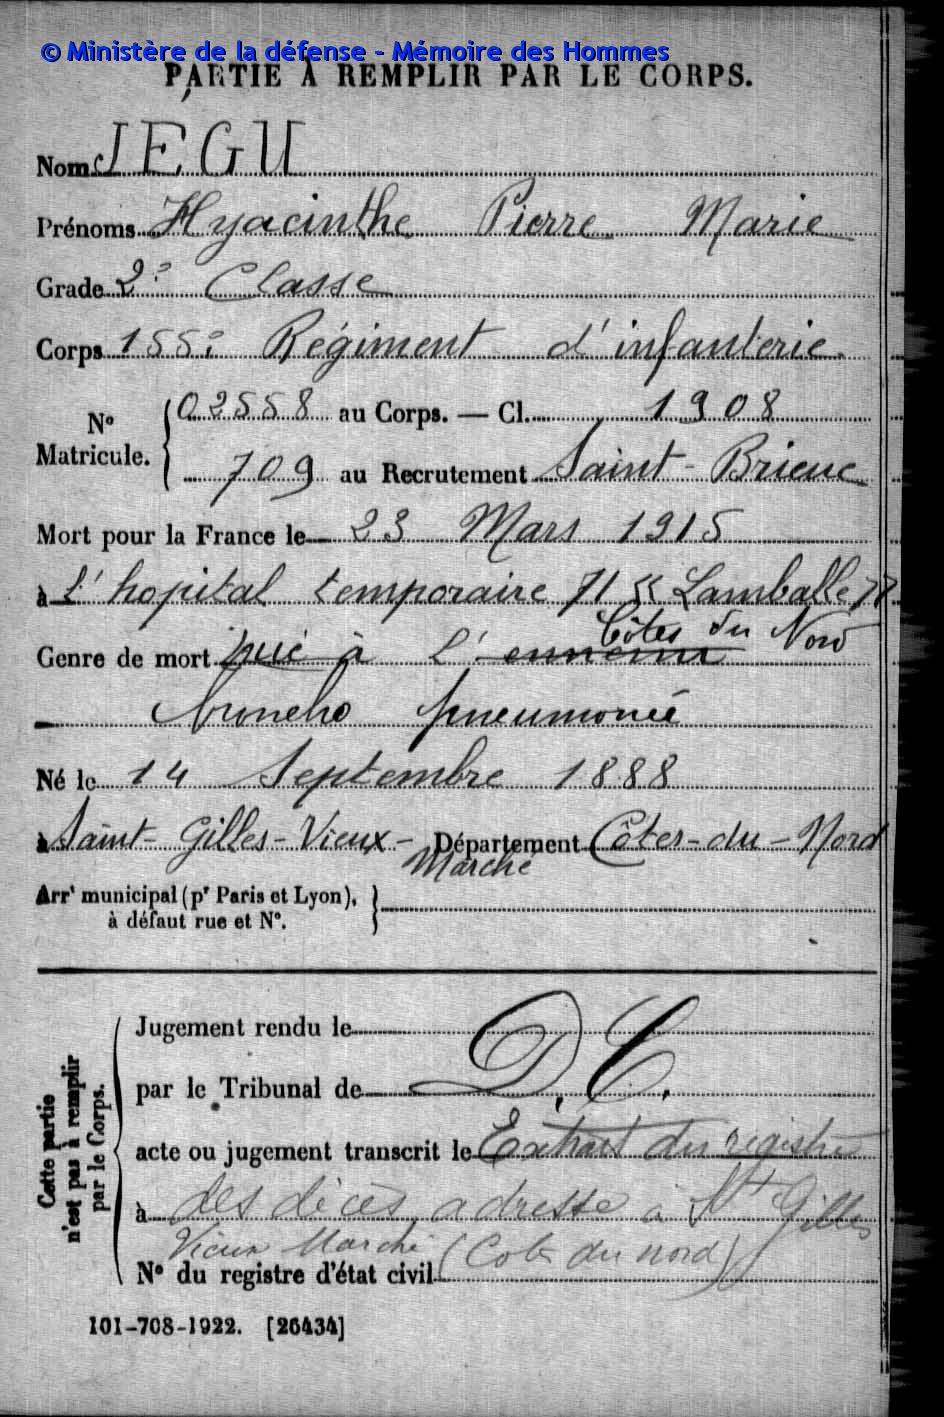 © Ministère de la défense - Mémoire des Hommes
PARTIE À REMPLIR PAR LE CORPS.
Nom JÉGU
Prénoms Hyacinthe Pierre Marie
Grade 2e Classe
Corps 155e Régiment d'infanterie
N° Matricule. { 02558 au Corps. — Cl. 1908
709 au Recrutement Saint-Brieuc
Mort pour la France le 23 Mars 1915
à l'hopital temporaire 71 "Lamballe"
Côtes du Nord
Genre de mort tué à l'ennemi
broncho pneumonie
Né le 14 Septembre 1888
à Saint-Gilles-Vieux- Département Côtes-du-Nord
Marché
Arrt municipal (pr Paris et Lyon),
à défaut rue et N°.
Cette partie n'est pas à remplir par le Corps.
Jugement rendu le
par le Tribunal de D.C.
acte ou jugement transcrit le Extrait du registre
à des décès adressé à St Gilles
Vieux Marché (Cotes du nord)
N° du registre d'état civil
101-708-1922. [26434]